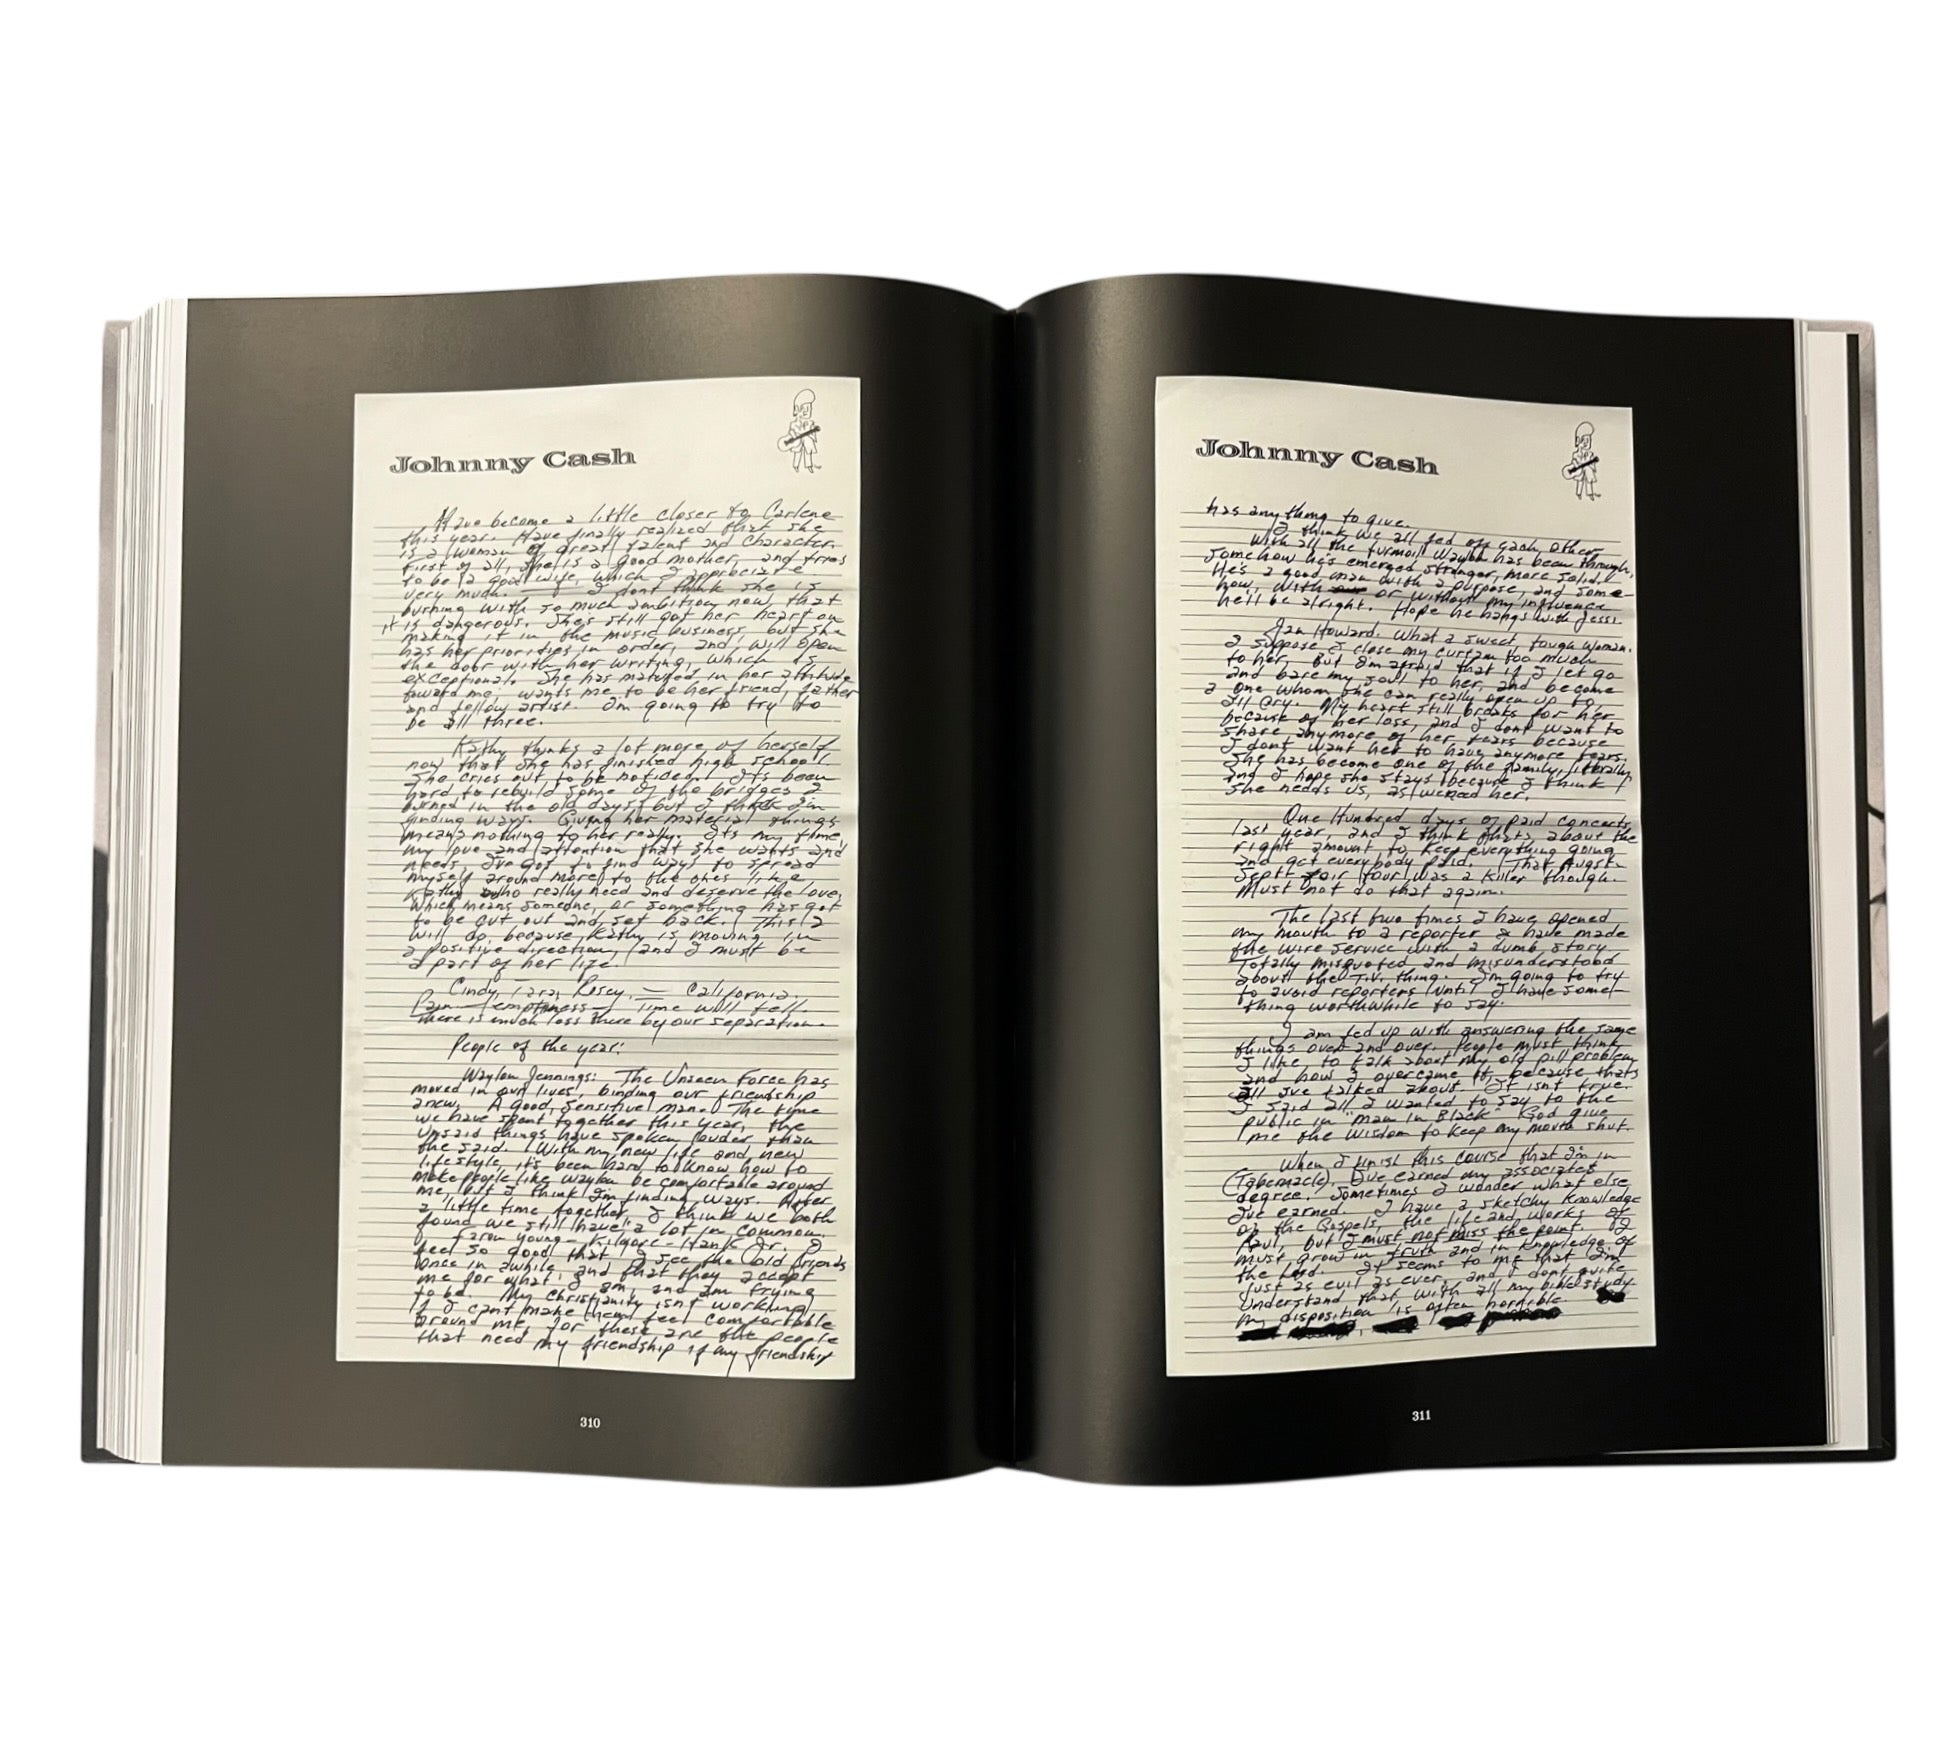 Johnny Cash
Have become a little closer to Carlene
this year. Have finally realized that she
is a woman of great talent and character.
First of all, she is a good mother, and tries
to be a good wife, which I appreciate
very much. I dont think she is
burning with so much ambition now, that
it is dangerous. She's still got her heart on
making it in the music business, but she
has her priorities in order, and, will open
the door with her writing, which is
exceptional. She has matured in her attitude
toward me, wants me to be her friend, father
and fellow artist. I'm going to try to
be all three.
Kathy thinks a lot more of herself
now that she has finished high school.
She cries out to be noticed. Its been
hard to rebuild some of the bridges I
burned in the old days, but I think I'm
finding ways. Giving her material things
means nothing to her really. Its my time,
my love and attention that she wants and
needs, I've got to find ways to spread
myself around more, to the ones like
Kathy who really need and deserve the love,
which means someone, or something has got
to be cut out and set back. This I
will do, because Kathy is moving in
a positive direction, and I must be
a part of her life.
Cindy, Tara, Rosey, — California
Pain — emptiness — Time will tell.
There is much loss there by our separation.
People of the year:
Waylon Jennings: The Unseen Force has
moved in our lives, binding our friendship
anew. A good, sensitive man. The time
we have spent together this year, the
unsaid things have spoken louder than
the said. With my new life and new
lifestyle, it's been hard to know how to
make people like Waylon be comfortable around
me, but I think I'm finding ways. After
a little time together, I think we both
found we still have a lot in common.
Faron Young - Kilgore - Hank Jr. I
feel so good that I see the old friends
once in awhile, and that they accept
me for what I am, and am trying
to be. My Christianity isn't working
if I cant make them feel comfortable
around me, for these are the people
that need my friendship if my friendship
310
Johnny Cash
has any thing to give.
I think we all fed off each other
With all the turmoil Waylon has been through,
somehow he's emerged stronger, more solid.
He's a good man with a purpose, and some-
how, with or without my influence
he'll be alright. Hope he hangs with Jessi.
Jan Howard. What a sweet tough woman.
I suppose I close my curtain too much
to her, but I'm afraid that if I let go
and bare my soul to her, and become
a one whom she can really open up to,
I'll cry. My heart still breaks for her
because of her loss, and I dont want to
share anymore of her tears because
I dont want her to have anymore tears.
She has become one of the family, literally,
and I hope she stays because I think
she needs us, as we need her.
One Hundred days of paid concerts
last year, and I think thats about the
right amount to keep everything going
and get everybody paid. That August-
Sept fair tour was a killer though.
Must not do that again.
The last two times I have opened
my mouth to a reporter I have made
the wire service with a dumb story.
Totally misquoted and misunderstood
about the T.V. thing. I'm going to try
to avoid reporters until I have some-
thing worthwhile to say.
I am fed up with answering the same
things over and over. People must think
I like to talk about my old pill problem
and how I overcame it, because thats
all I've talked about. It isnt true.
I said all I wanted to say to the
public in "Man in Black" God give
me the wisdom to keep my mouth shut.
When I finish this course that I'm in
(Tabernacle), I've earned my associates
degree. Sometimes I wonder what else
I've earned. I have a sketchy knowledge
of the Gospels, the life and works of
Paul, but I must not miss the point. I
must grow in truth and in knowledge of
the Lord. It seems to me that I'm
just as evil as ever, and I dont quite
understand that, with all my bible study
my disposition is often horrible
311